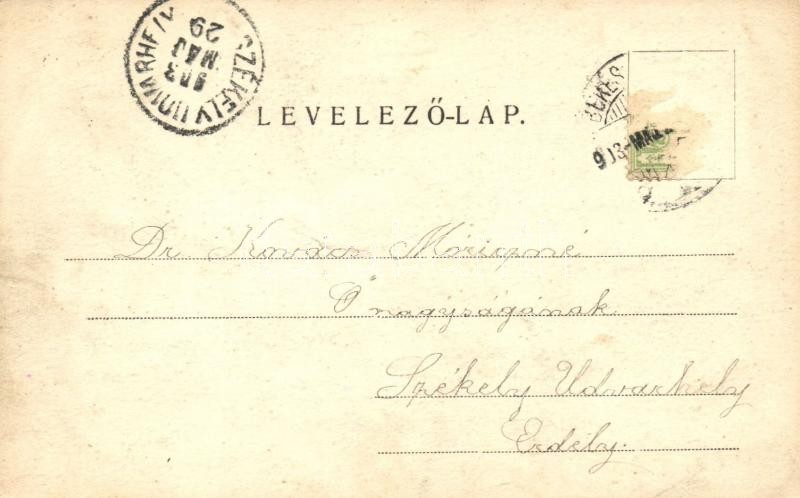 SZÉKELYUDVARHELY
903
MÁJ
29
LEVELEZŐ-LAP.
BÉKÉS
903 MÁJ
Dr. Kovács Móriczné
Őnagyságának
Székely Udvarhely
Erdély.